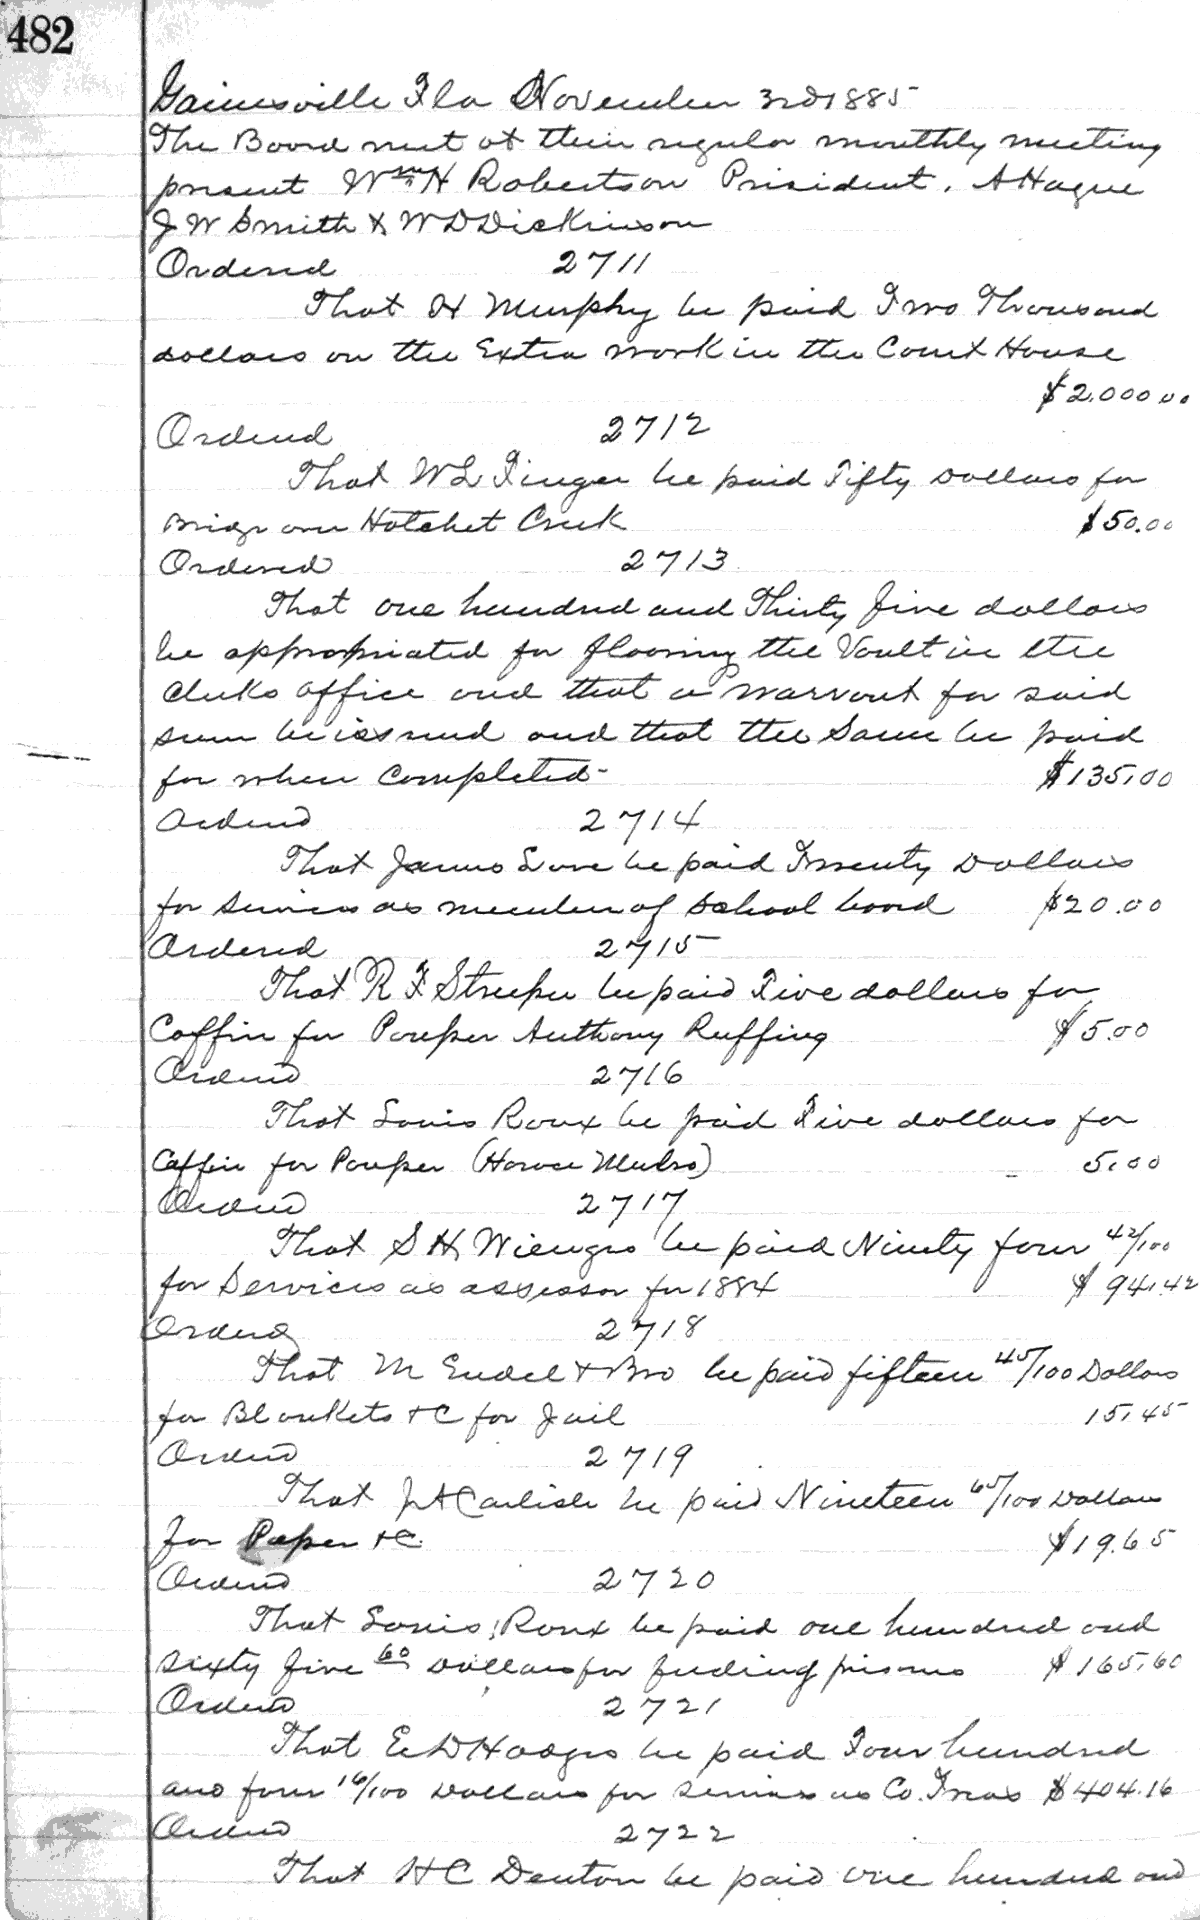 482
Gainesville Fla November 3rd 1885
The Board met at their regular monthly meeting
present Wm H Robertson President. A Hague
J W Smith & W D Dickinson
Ordered 2711
That H Murphy be paid Two Thousand
dollars on the Extra work in the Court House
$2.000.00
Ordered 2712
That W L Finger be paid Fifty Dollars for
Bridge over Hatchet Creek $50.00
Ordered 2713
That one hundred and Thirty five dollars
be appropriated for flooring the Vault in the
Clerks office and that a warrant for said
sum be issued and that the Same be paid
for when Completed- $135.00
Ordered 2714
That James Love be paid Twenty Dollars
for services as member of School board $20.00
Ordered 2715
That R F Streeper be paid Five dollars for
Coffin for Pauper Anthony Ruffing $5.00
Ordered 2716
That Louis Roux be paid Five dollars for
Coffin for Pauper (Horace ) 5.00
Ordered 2717
That S H Wienges be paid Ninety four 42/100
for Services as assessor for 1884 $94.42
Ordered 2718
That M Endel & Bro be paid fifteen 45/100 Dollars
for Blankets &C for Jail 15.45
Ordered 2719
That J A Carlisle be paid Nineteen 65/100 Dollars
for Paper &C. $19.65
Ordered 2720
That Louis Roux be paid one hundred and
sixty five 60 Dollars for feeding prisoners $165.60
Ordered 2721
That E D Hodges be paid Four hundred
and four 16/100 Dollars for services as Co. Treas $404.16
Ordered 2722
That H C Denton be paid one hundred and